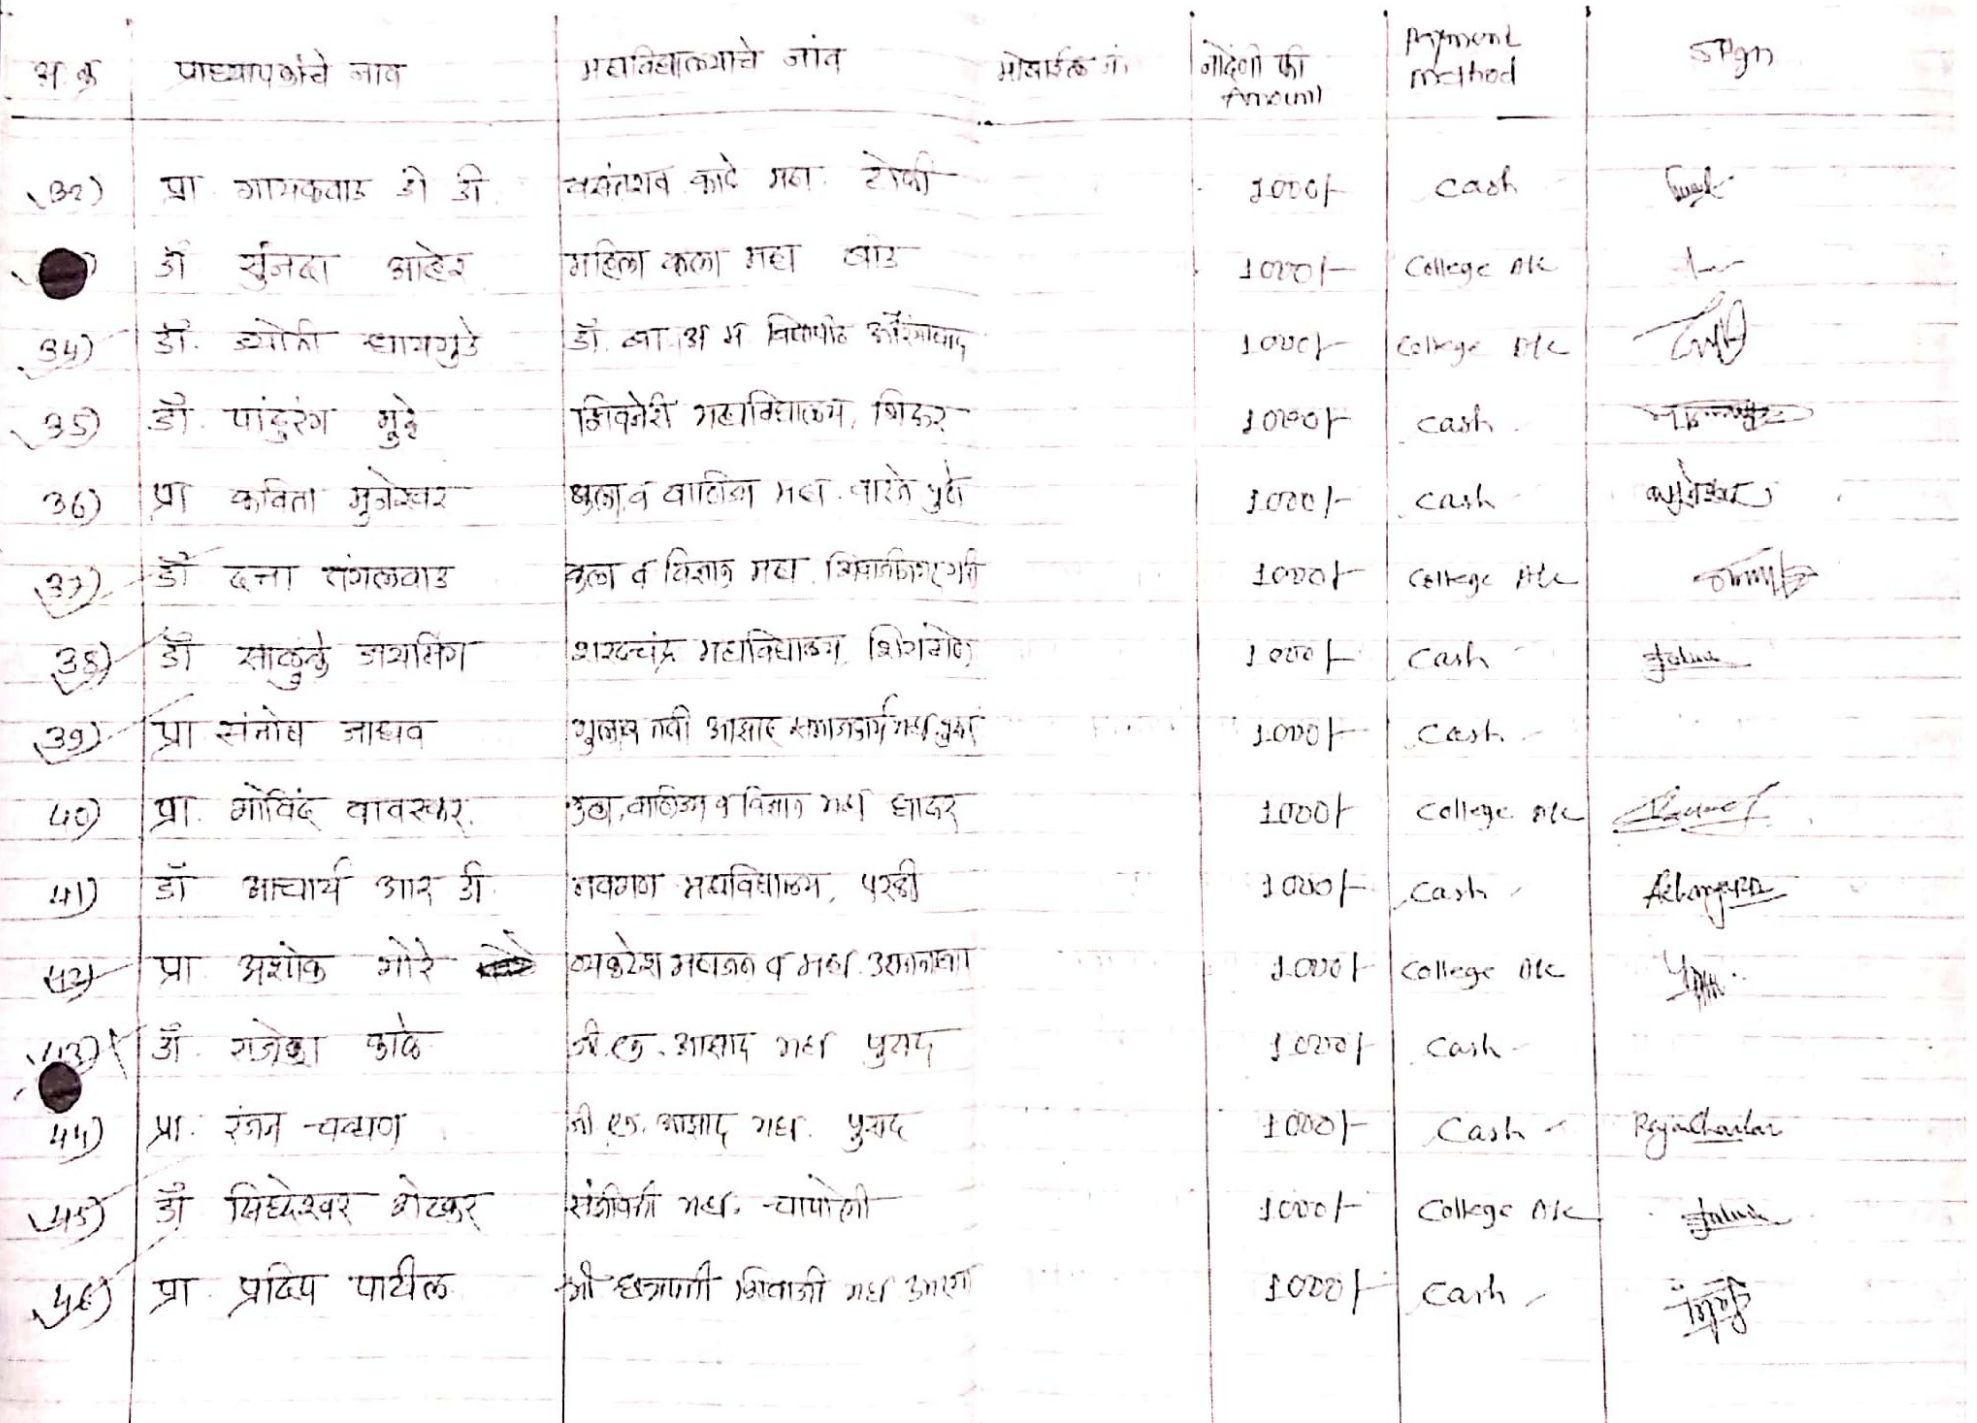 अ.क्र प्राध्यापकांचे नाव महाविद्यालयाचे नांव मोबाईल नं. नोंदणी फी Amount Payment method Sign
32) प्रा. गायकवाड डी डी. वसंतराव काळे महा. ढोकी 1000/- Cash
डॉ सुंनदा आहेर महिला कला महा बीड 1000/- College A/c
34) डॉ. ज्योती धायगुडे डॉ. बा. अ म विद्यापीठ औरंगाबाद 1000/- College A/c
35) डॉ. पांडुरंग मुंडे महाविद्यालय, 1000/- Cash
36) प्रा कविता मुनेश्वर कला व वाणिज्य महा. 1000/- Cash
37) डॉ दत्ता तंगलवाड कला व विज्ञान महा. 1000/- College A/c
38) डॉ साळुंके जयसिंग शरदचंद्र महाविद्यालय, 1000/- Cash
39) प्रा संतोष जाधव गुलाब नबी आझाद समाजकार्य महा. पुसद 1000/- Cash
40) प्रा. गोविंद बावस्कर. कला, वाणिज्य व विज्ञान महा 1000/- College A/c
41) डॉ आचार्य आर डी. नवगण महाविद्यालय, परळी 1000/- Cash
42) प्रा अशोक गोरे व्यंकटेश महाजन व महा. उस्मानाबाद 1000/- College A/c
43) डॉ. राजेश काळे जी.एन. आझाद महा पुसद 1000/- Cash
44) प्रा. रंजन चव्हाण जी एन. आझाद महा. पुसद 1000/- Cash
45) डॉ सिध्देश्वर शेटकर संजीवनी महा. चापोली 1000/- College A/c
46) प्रा. प्रदिप पाटील श्री छत्रपती शिवाजी महा उमरगा 1000/- Cash